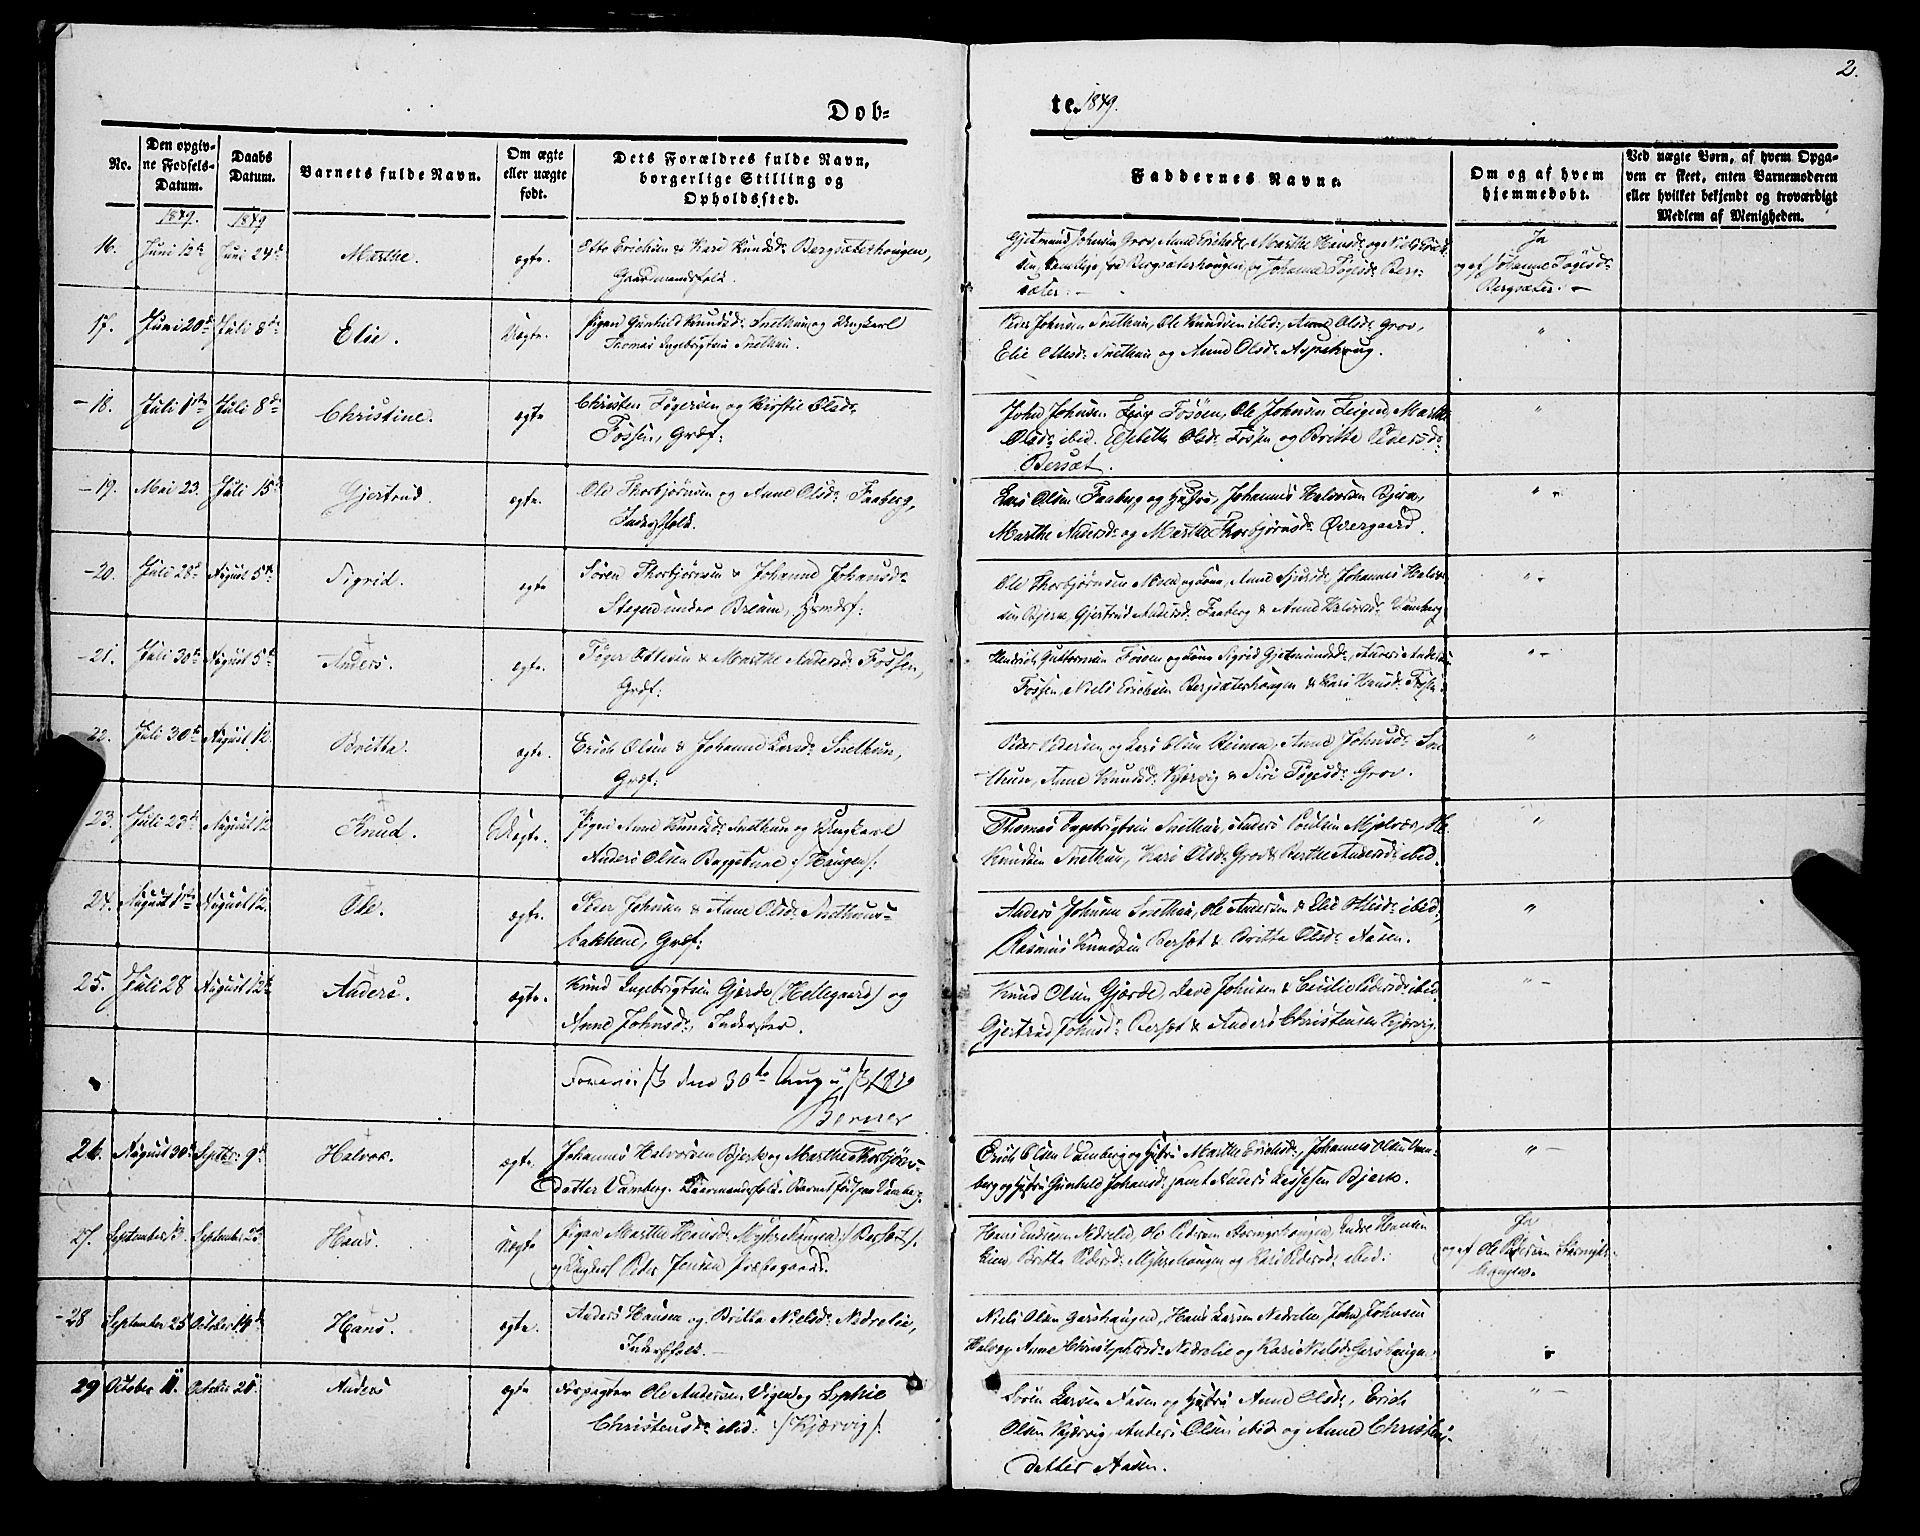 2.
Dob=
te. 1849.
No.
Den opgiv=
ne Fødsels=
Datum.
Daabs
Datum.
Barnets fulde Navn.
Om ægte
eller uægte
født.
Dets Forældres fulde Navn,
borgerlige Stilling og
Opholdssted.
Faddernes Navne.
Om og af hvem
hjemmedøbt.
Ved uægte Børn, af hvem Opga=
ven er skeet, enten Barnemoderen
eller hvilket bekjendt og troværdigt
Medlem af Menigheden.
1849. 1849
16. Juni 12te Juni 24de Marthe. ægte. Otte Erichsen & Kari Knudsd: Bergsæterhougen,
Gaardmandsfolk.
Gjetmund Johnsen Grov, Anne Erichsd:, Marthe Hansd: og Niels Erich
sen, samtlige fra Bergsæterhougen, og Johanne Tøgesd: Berg-
sæter. —
Ja
og af Johanne Tøgersd:
Bergsæter. —
17. Juni 20de Juli 8de Elie. Uægte. Pigen Gunhild Knudsd: Snethun og Ungkarl
Thomas Ingebrigtsen Snethun.
Peder Johnsen Snethun, Ole Knudsen ibid:, Anne Olsd: Grov,
Elie Ottesd: Snethun og Anne Olsd: Aspehoug.
"
18. Juli 1ste Juli 8de Christine. ægte Christen Tøgersen og Kirstie Olsd:
Fossen, Grdf:
John Johnsen Fosøen, Ole Johnsen Marthe
Olsd: ibid. Elsebeth Olsd: Fossen og Britte Pedersd:
Bersæt.
"
19. Mai 23. Juli 15de Gjertrud. ægte. Ole Thorbjørnsen og Anne Olsd: Faaberg,
Inderstfolk.
Lars Olsen Faaberg og Hustru, Johannes Halvorsen Bjerk,
Marthe Andersd: og Marthe Thorbjørnsd: Overgaard.
"
20. Juli 28de August 5te Sigrid. ægte Søren Thorbjørnsen & Johanne Johansd:
Stegen under Breum, Huusmdsf:
Ole Thorbjørnsen Moen og Kone, Anne Sjursd:, Johannes Halvor
sen Bjerk, Gjertrud Andersd: Faaberg & Anne Halvorsd: Vamberg
"
21. Juli 30te August 5te Anders. ægte. Tøger Ottesen & Marthe Andersd: Fossen,
Grdf:
Hendrich Guttormsen Fosøen og Kone Sigrid Gjetmundsd:, Anders Anders
Fossen, Niels Erichsen Bergsæterhougen & Kari Hansd: Fossen.
"
22. Juli 30te August 12. Britta. ægte. Erich Olsen & Johanne Larsd: Snethun,
Grdf:
Peder Pedersen og Lars Olsen Reinen, Anne Johnsd: Sne
thun, Anne Knudsd: Kjørvig & Siri Tøgesd: Grov.
"
23. Juli 23de August 12 Knud. Uægte. Pigen Anne Knudsd: Snethun og Ungkarl
Anders Olsen Byggetune /:Haugen:/.
Thomas Ingebrigtsen Snethun, Anders Poulsen Mjelvær, Ole
Knudsen Snethun, Kari Olsd: Grov & Berthe Andersd: ibid.
"
24. August 1ste August 12. Ole. ægte. Peter Johnsen & Anne Olsd: Snethuns-
bakkene, Grdf:
Anders Johnsen Snethun, Ole Andersen & Elie Ottesd: ibid,
Rasmus Knudsen Bersæt & Britta Olsd: Aasen.
"
25. Juli 28 August 12te Anders. ægte. Knud Ingebrigtsen Gjerde (Hellegaard) og
Anne Johnsd:, Inderster.
Knud Olsen Gjerde, David Johnsen & Cecilie Pedersd: ibid
Gjertrud Johnsd: Bersæt & Anders Christensen Kjørvig.
"
Foreviist den 30te August 1849
Berner
26. August 30te Septbr 9de Halvor. ægte. Johannes Halvorsen Bjerk og Marthe Thorbjørns-
datter Vamberg. Gaardmandsfolk. Barnet født paa Vamberg.
Erich Olsen Vamberg og Hustru Marthe Erichsd:, Johannes Olsen Vam-
berg og Hustru Gunhild Johansd: samt Anders Lassesen Bjerk.
"
27. September 13 September 23 Hans. Uægte Pigen Marthe Hansd: Myklehaugen /:Bersæt:/.
og Ungkarl Peder Jensen Præstegaard.
Hans Endresen Nedrelid, Ole Pedersen Støringshougen, Endre Hansen
Lien, Britta Pedersd: Myklehougen og Kari Pedersd: ibid:
Ja
og af Ole Pedersen Størings:
hougen.
28 September 25 October 14de Hans. ægte. Anders Hansen og Britta Nielsd: Nedrelie,
Inderstfolk.
Niels Olsen Garshaugen, Hans Larsen Nedrelie, John Johnsen
Anne Christophersd: Nedrelie og Kari Nielsd: Garshaugen.
29 October 11. October 21 Anders ægte Forpagter Ole Andersen Vigen og Sophie
Christensd: ibid: /:Kjørvig:/.
Søren Larsen Aasen og Hustru Anne Olsd:, Erich
Olsen Kjørvig, Anders Olsen ibid og Anne Christens-
datter Aasen.
"